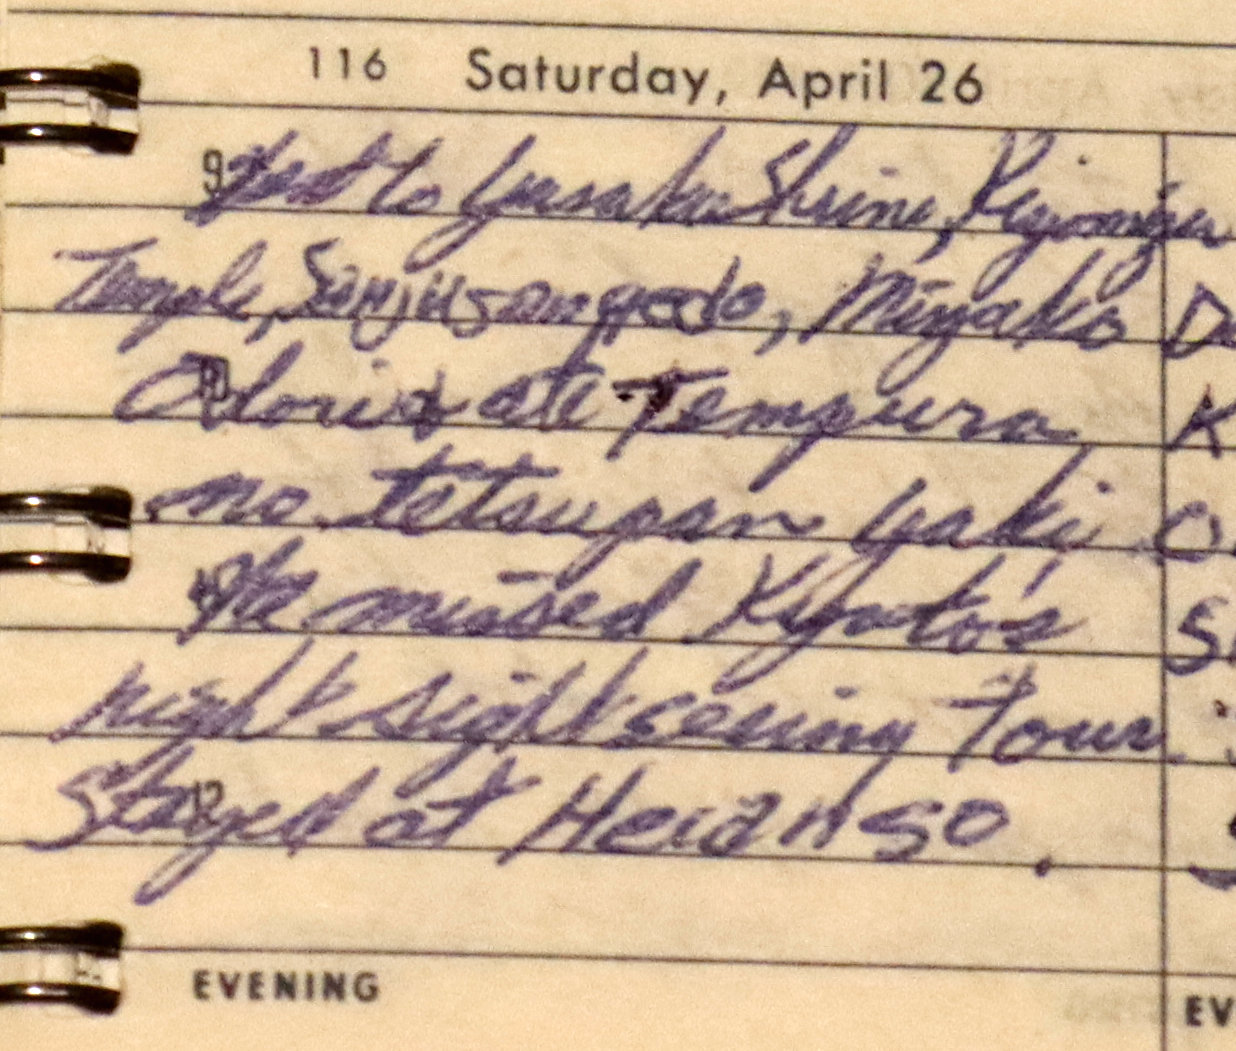 116 Saturday, April 26
9 Went to Yasaka Shrine, Kiyomizu
Temple, Sanjusangendo, Miyako D
Odori & ate Tempura K
no tetsupan yaki O
We missed Kyoto's S
night sightseeing tour.
12 Stayed at Heianso.
EVENING EV